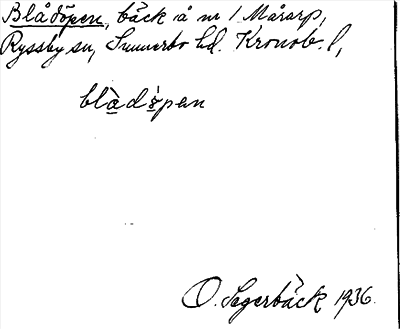 Blådöpen, bäck å nr 1 Mårarp,
Ryssby sn, Sunnerbo hd. Kronob. l,
blàdö̀pen
O. Segerbäck 1936.